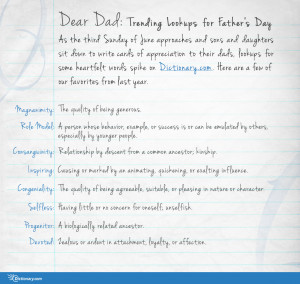 Dear Dad: Trending Lookups for Father's Day
As the third Sunday of June approaches and sons and daughters
sit down to write cards of appreciation to their dads, lookups for
some heartfelt words spike on Dictionary.com. Here are a few of
our favorites from last year.
Magnanimity: The quality of being generous.
Role Model: A person whose behavior, example, or success is or can be emulated by others,
especially by younger people.
Consanguinity: Relationship by descent from a common ancestor; kinship.
Inspiring: Causing or marked by an animating, quickening, or exalting influence.
Congeniality: The quality of being agreeable, suitable, or pleasing in nature or character.
Selfless: Having little or no concern for oneself, unselfish.
Progenitor: A biologically related ancestor.
Devoted: Zealous or ardent in attachment, loyalty, or affection.
Dictionary.com